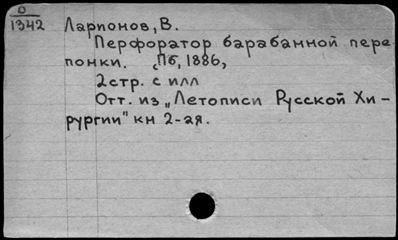 D
1342
Ларионов, В.
Перфоратор барабанной пере
понки. СПб, 1886,
2стр. с илл
Отт. из „Летописи Русской Хи-
рургии" кн 2-ая.